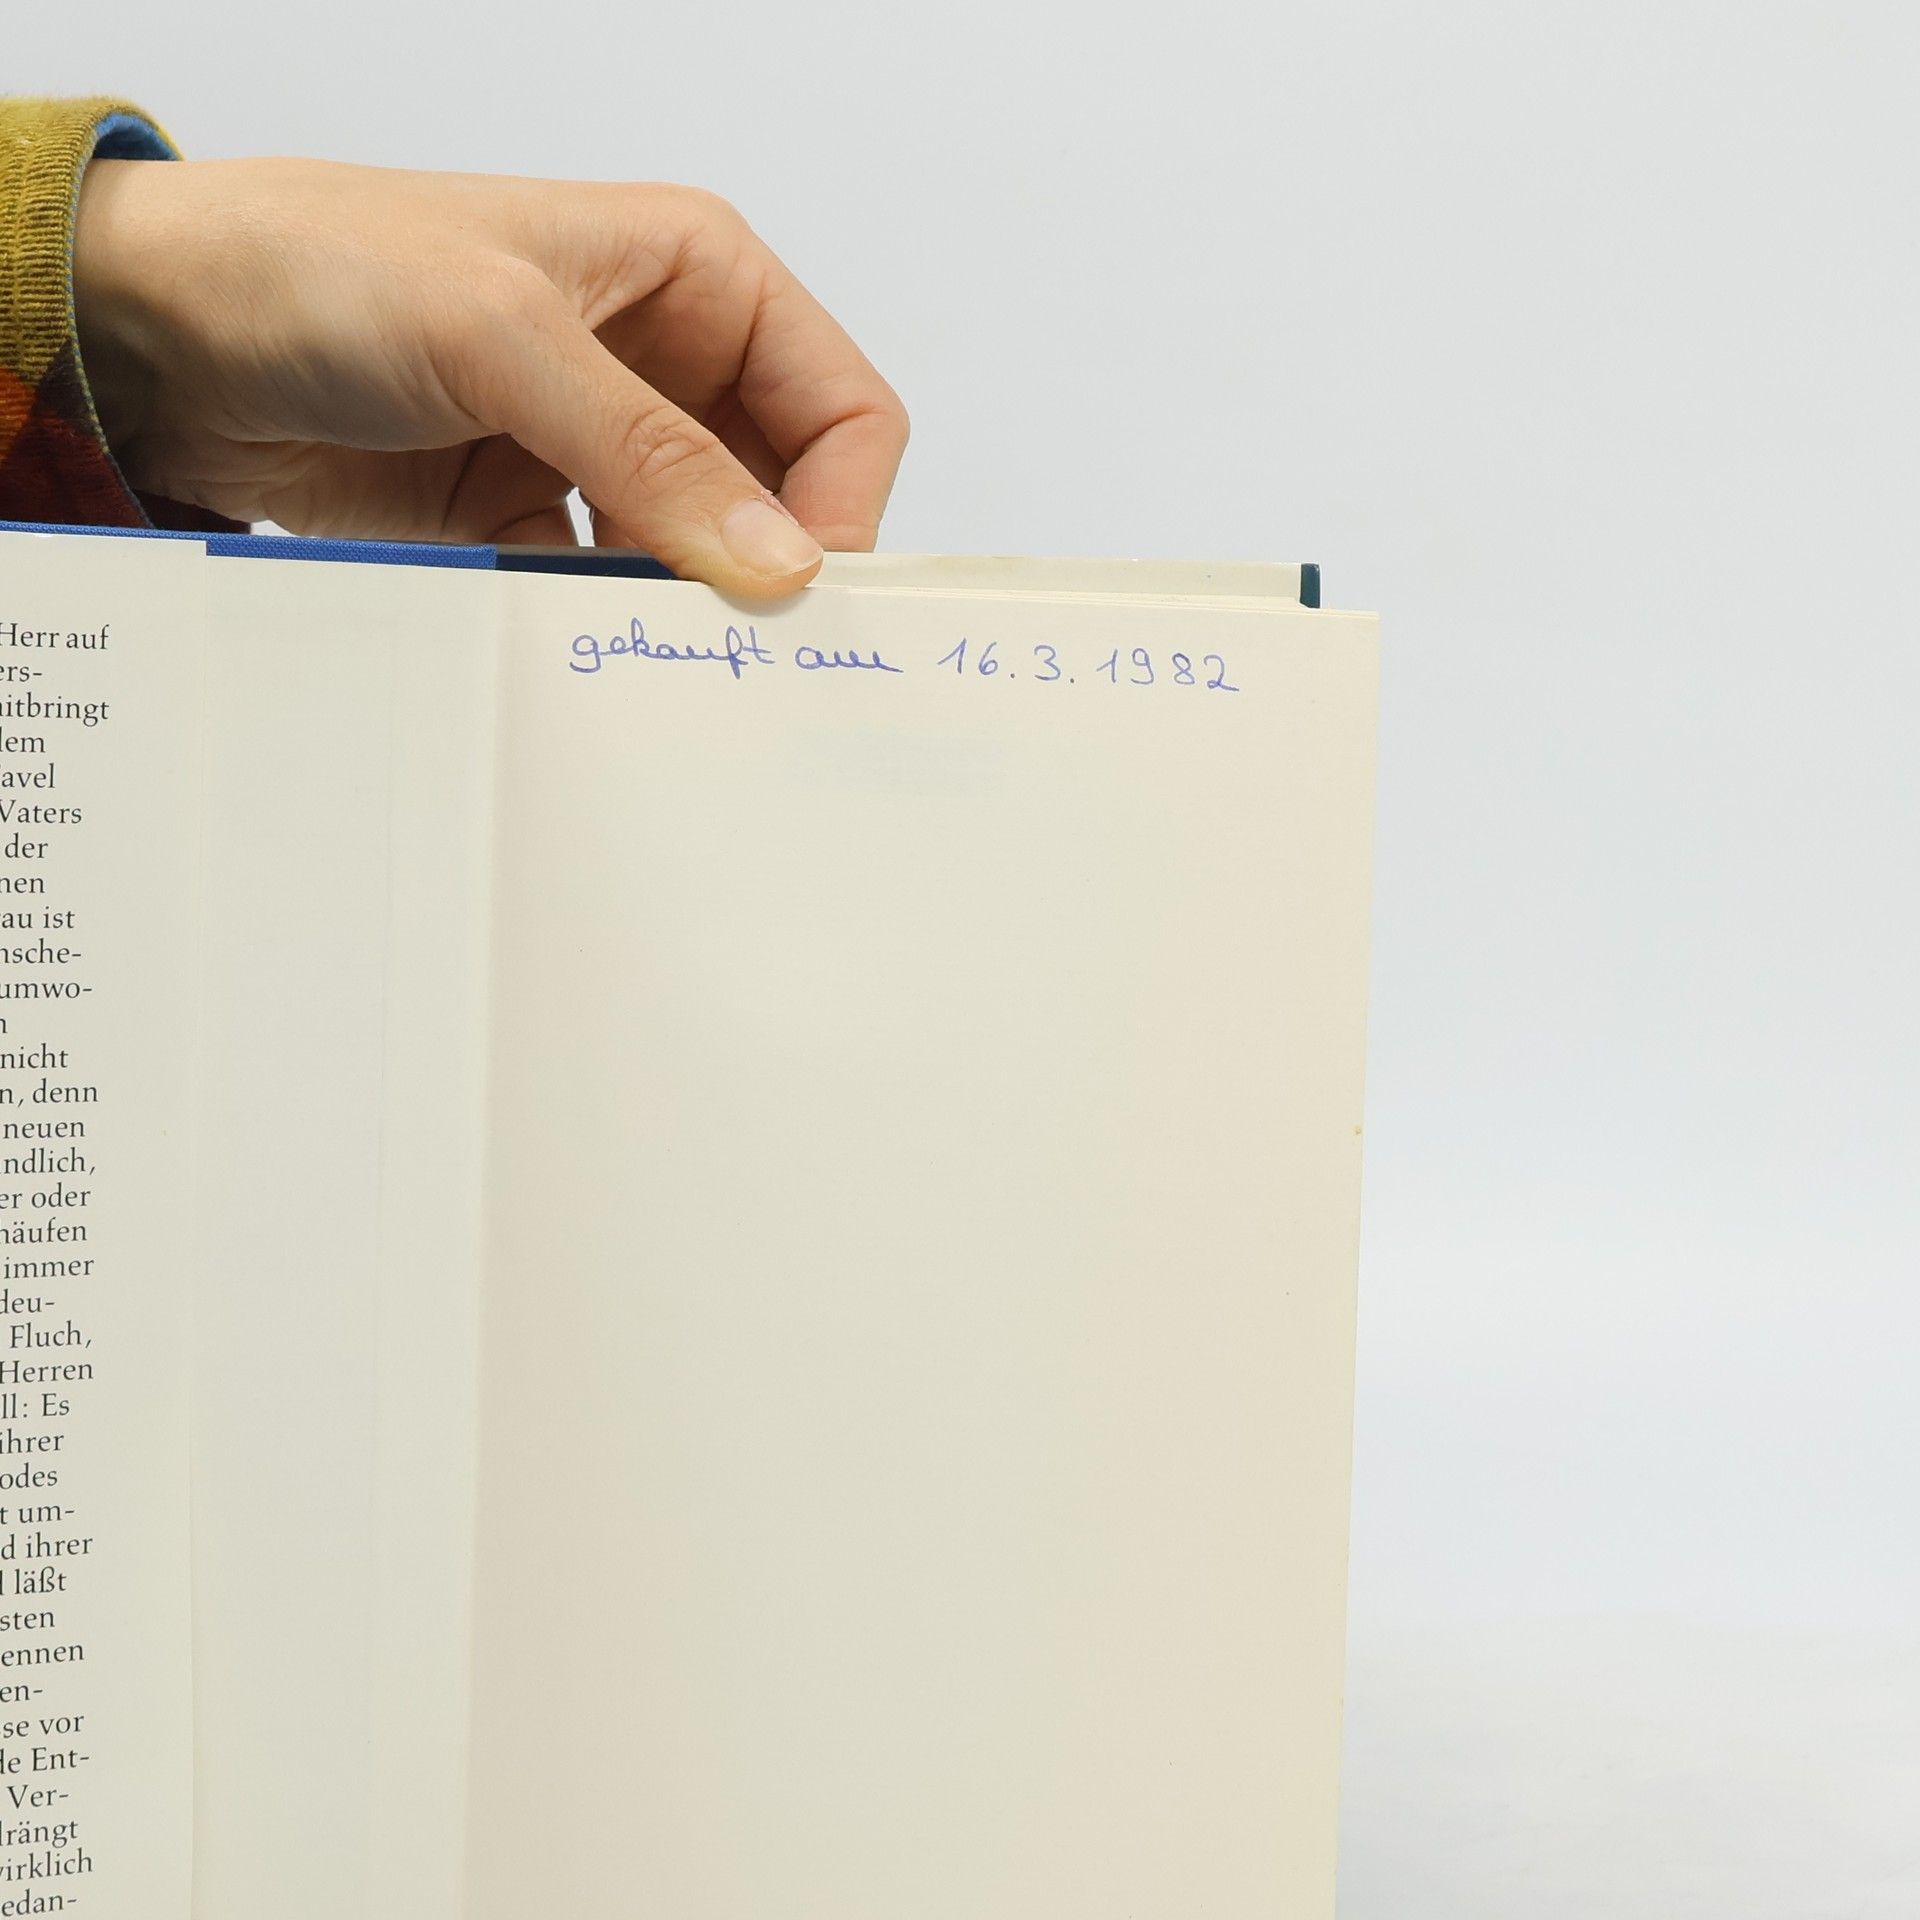 Herr auf
ers-
itbringt
dem
avel
Vaters
der
nen
au ist
nsche-
umwo-
n
nicht
n, denn
neuen
ndlich,
er oder
häufen
immer
deu-
Fluch,
Herren
ll: Es
ihrer
odes
t um-
d ihrer
läßt
sten
ennen
en-
se vor
de Ent-
Ver-
drängt
wirklich
edan-
gekauft am 16.3.1982